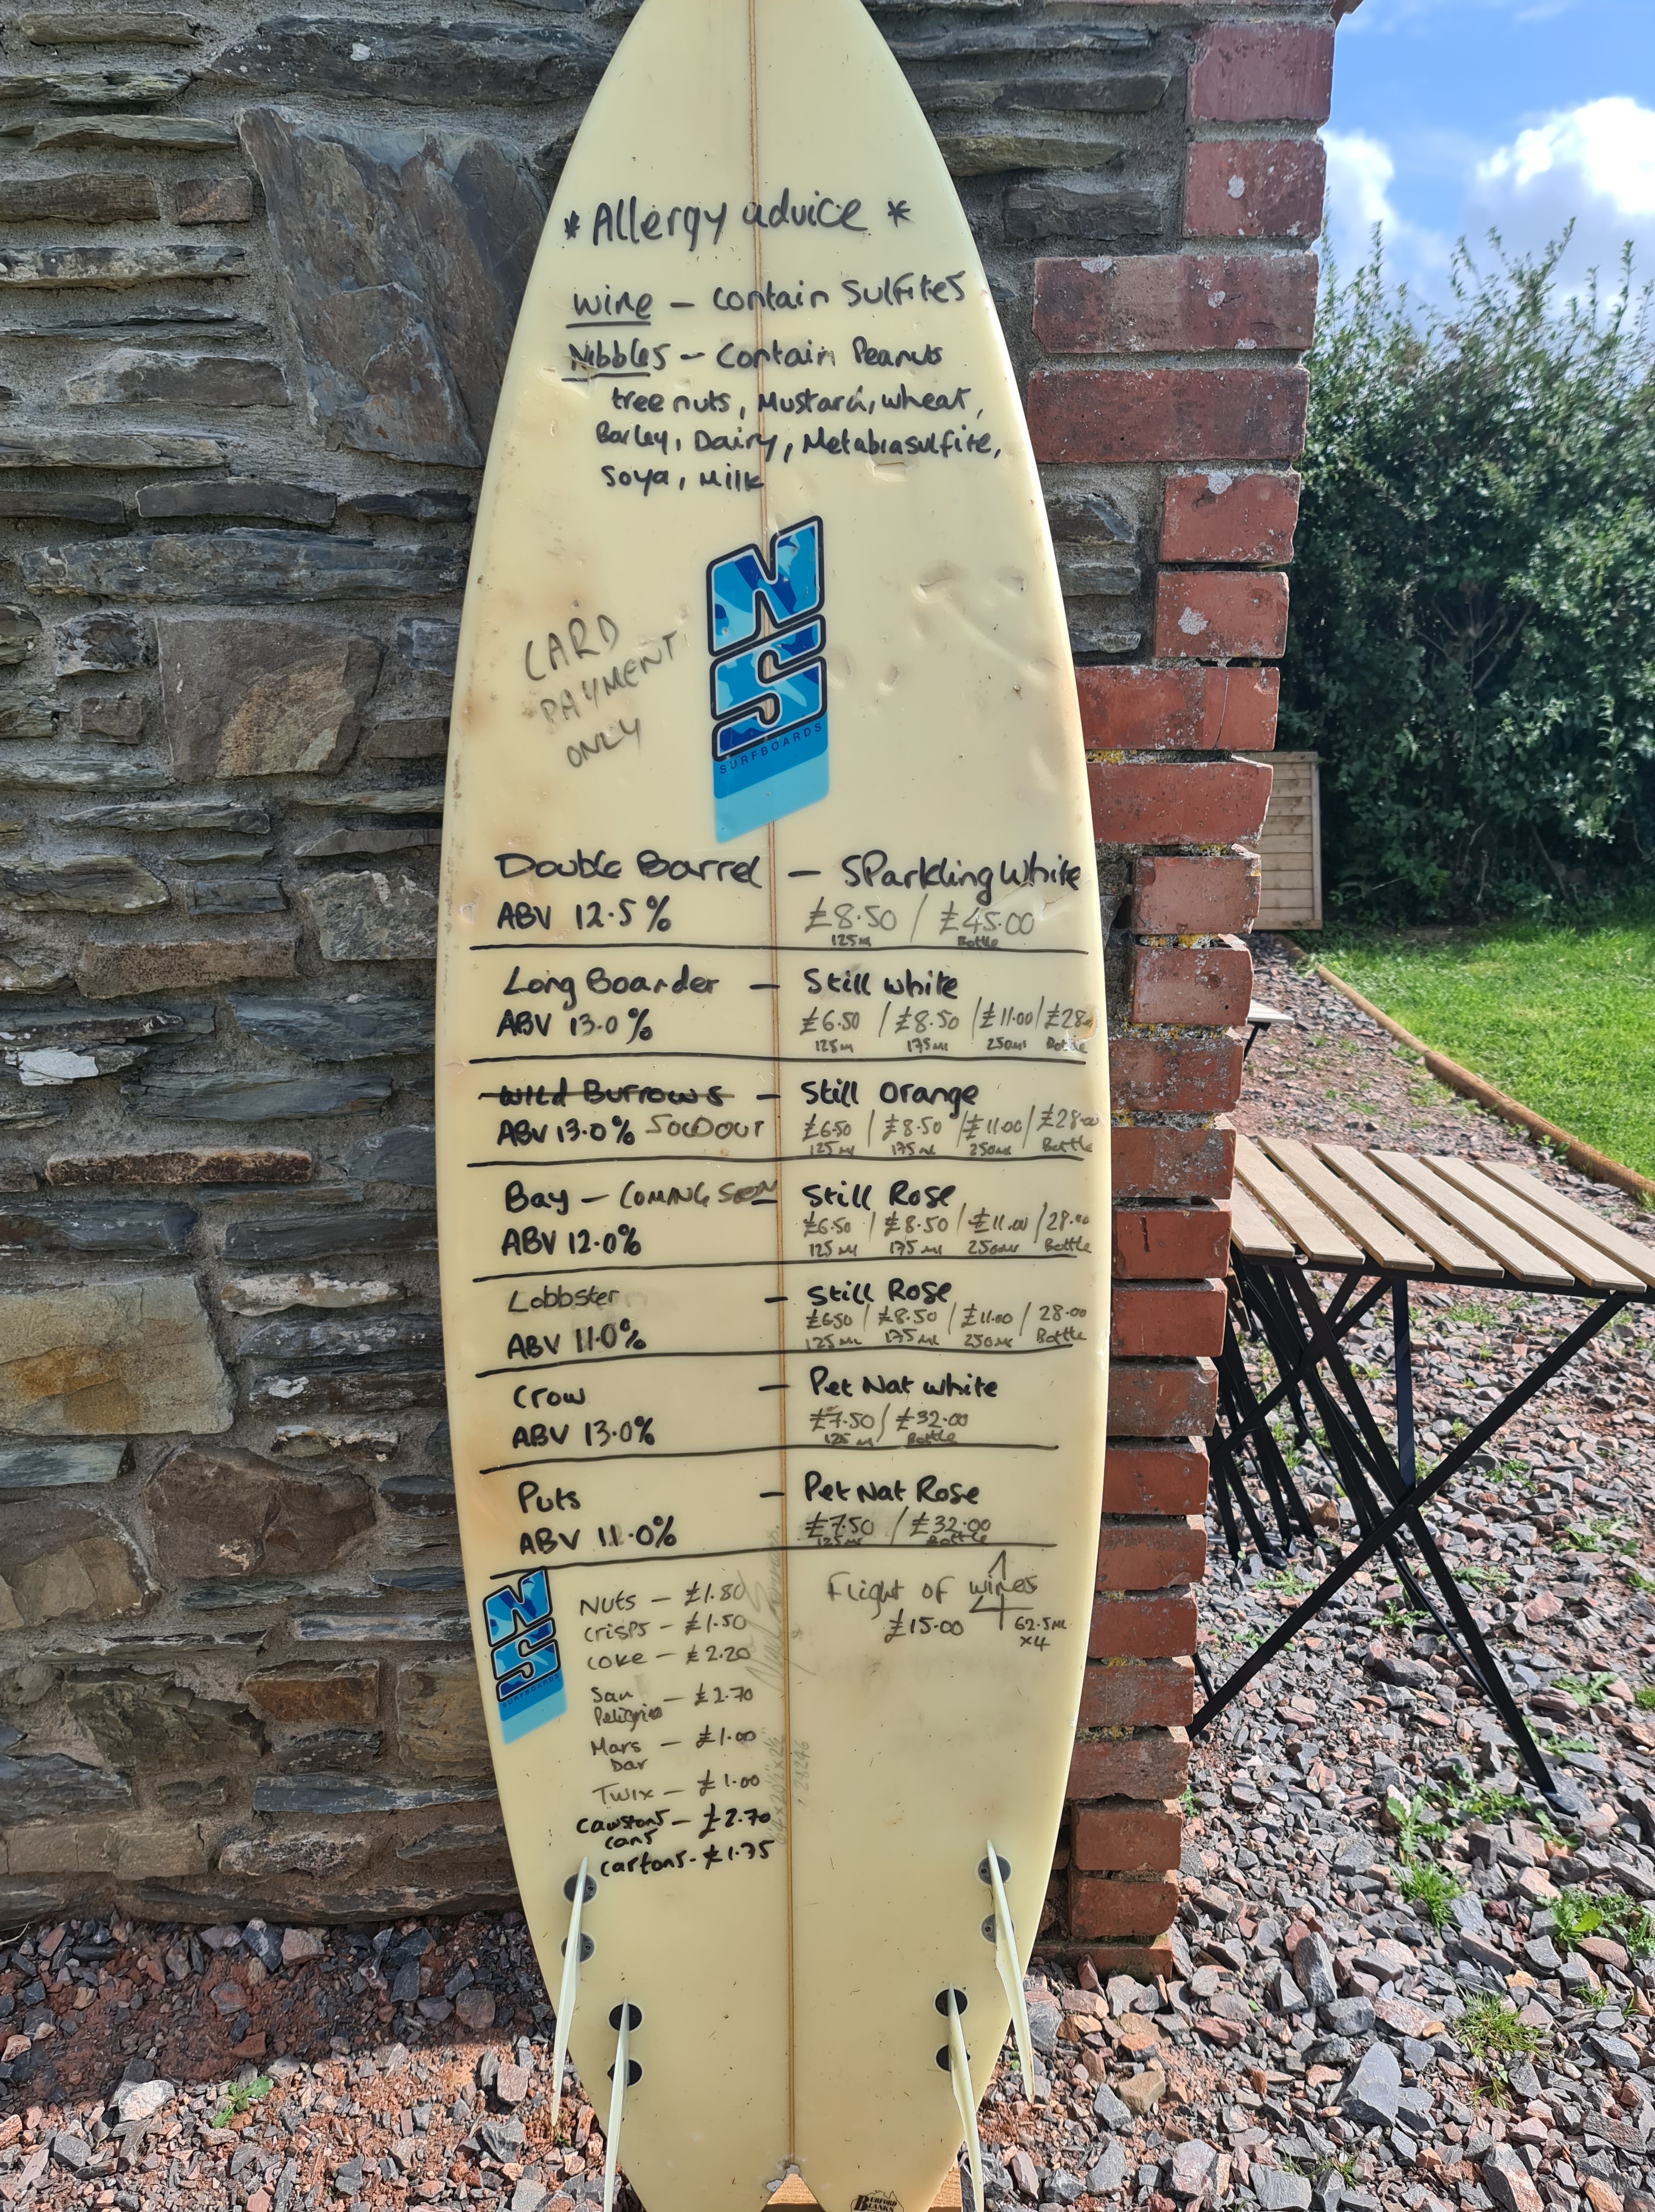 * Allergy advice *
Wine – contain Sulfites
Nibbles – Contain Peanuts
tree nuts, Mustard, wheat,
Barley, Dairy, Metabiasulfite,
Soya, Milk
CARD
PAYMENT
ONLY
SURFBOARDS
Double Barrel – SParkling White
ABV 12.5% £8.50 / £45.00
125ml Bottle
Long Boarder – Still white
ABV 13.0% £6.50 / £8.50 / £11.00 / £28.00
125ml 175ml 250ml Bottle
Wild Burrows – Still Orange
ABV 13.0% SOLD OUT £6.50 / £8.50 / £11.00 / £28.00
125ml 175ml 250ml Bottle
Bay – COMING SOON – Still Rose
ABV 12.0% £6.50 / £8.50 / £11.00 / 28.00
125ml 175ml 250ml Bottle
Lobbster – Still Rose
ABV 11.0% £6.50 / £8.50 / £11.00 / 28.00
125ml 175ml 250ml Bottle
Crow – Pet Nat white
ABV 13.0% £7.50 / £32.00
125ml Bottle
Puts – Pet Nat Rose
ABV 11.0% £7.50 / £32.00
125ml Bottle
Nuts – £1.80
Crisps – £1.50
Coke – £2.20
San – £2.70
Peligrio
Mars – £1.00
Bar
Twix – £1.00
Cawstons – £2.70
cans
cartons - £1.75
Flight of wines
£15.00 62.5ML
x4
SURFBOARDS
BURFORD
BLANKS